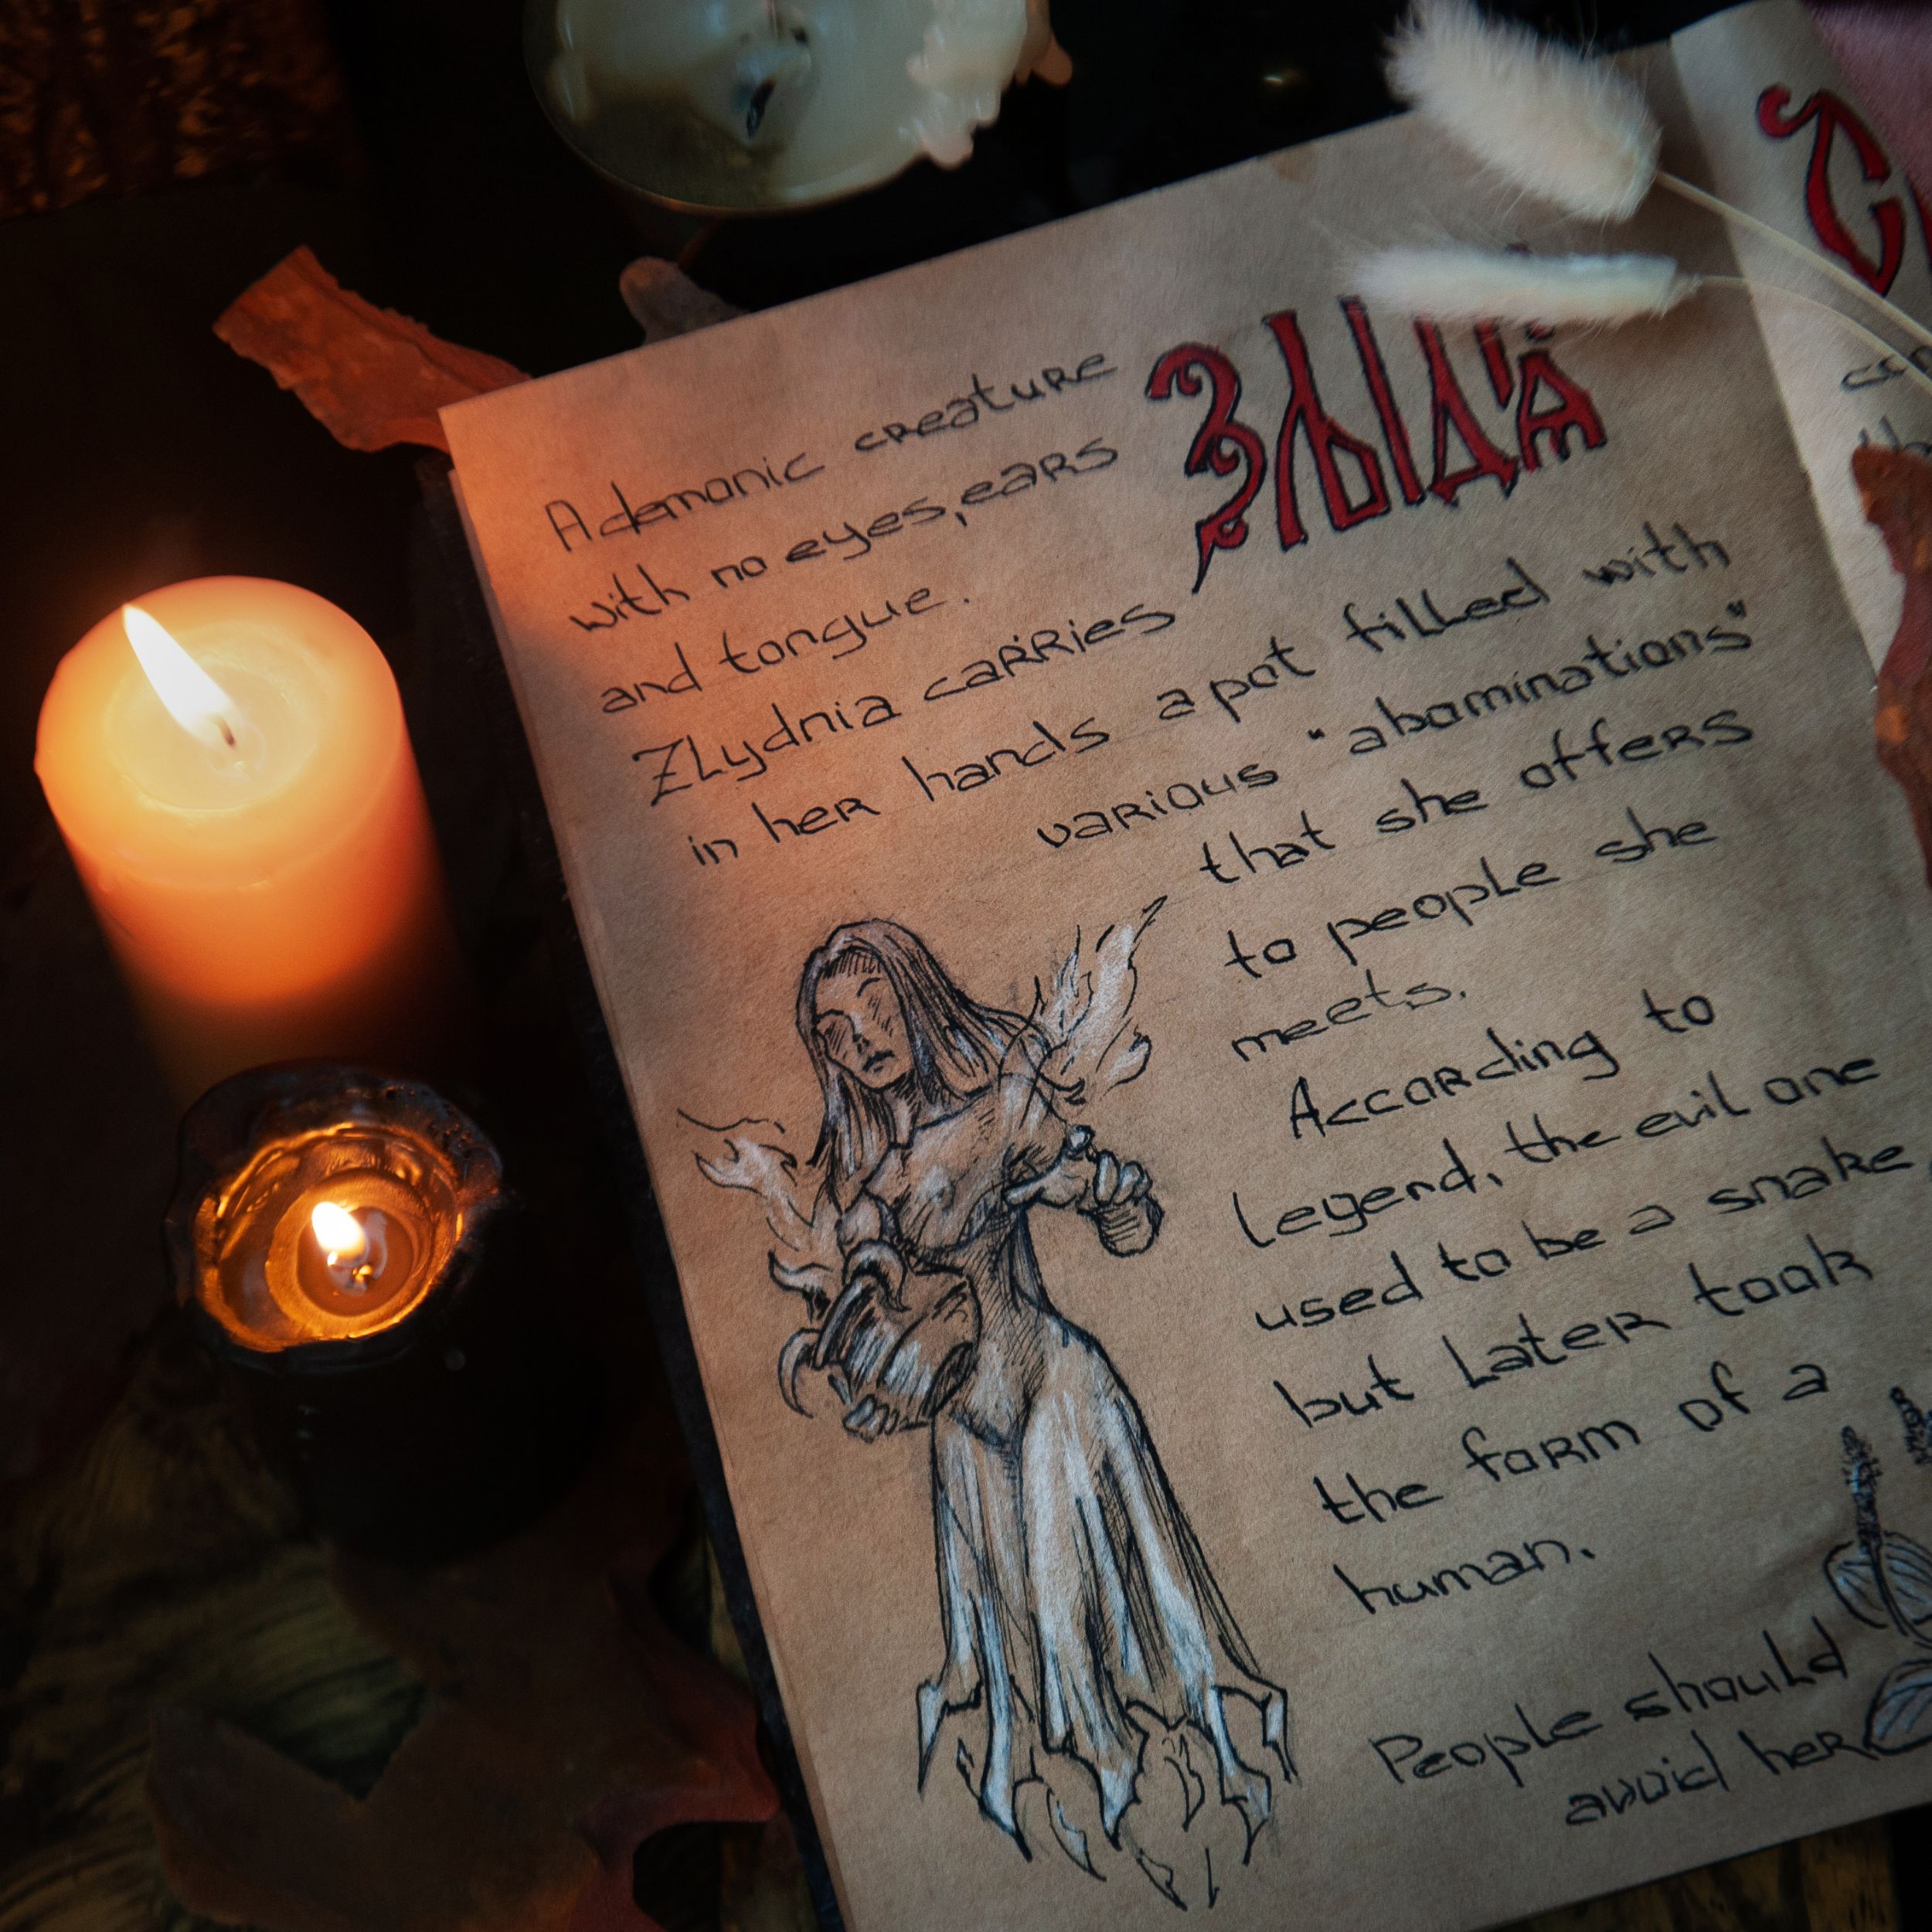 A demonic creature
with no eyes, ears
and tongue.
Zlydnia carries
in her hands a pot filled with
various "abominations"
that she offers
to people she
meets.
According to
legend, the evil one
used to be a snake
but later took
the form of a
human.
People should
avoid her